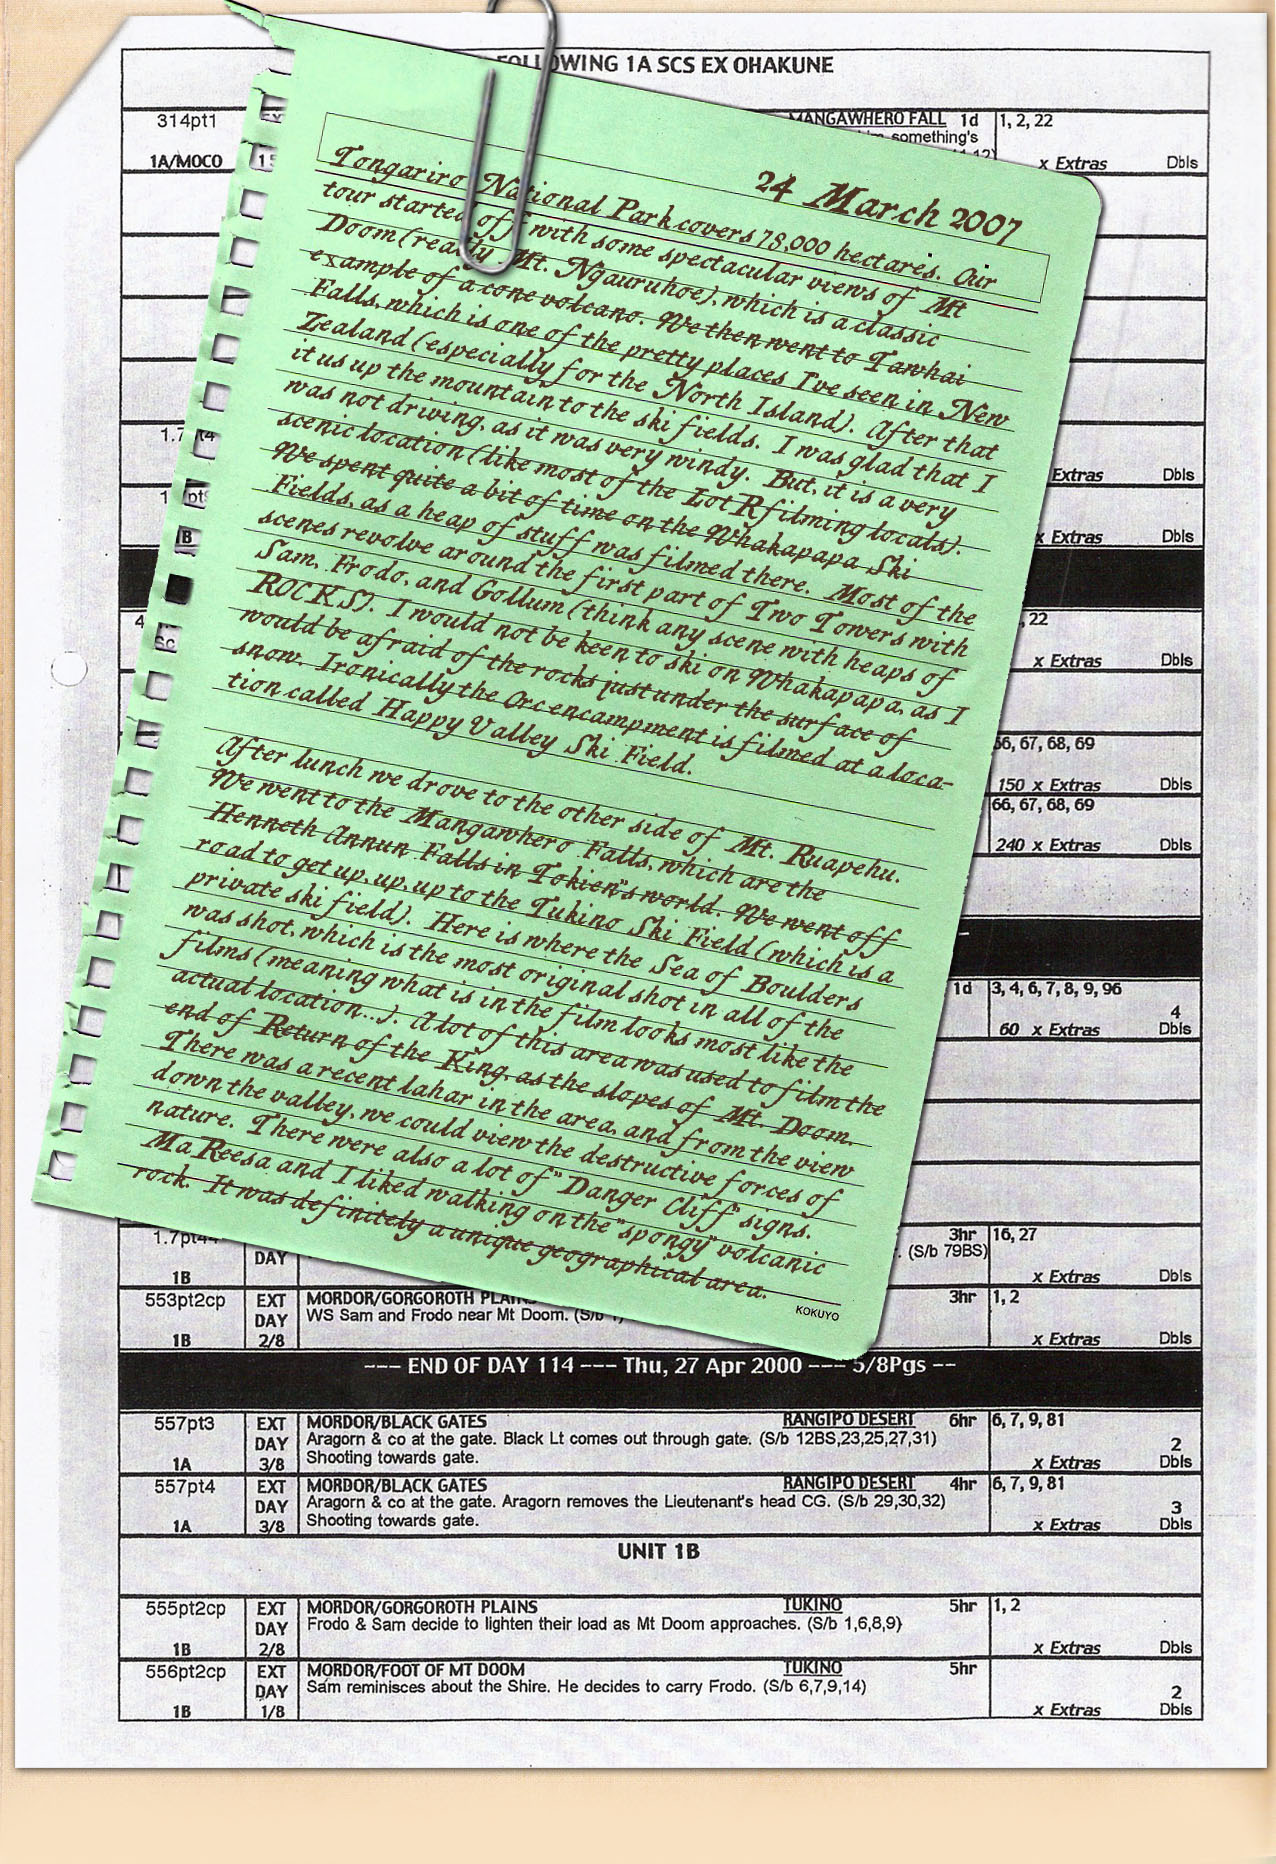 FOLLOWING 1A SCS EX OHAKUNE
314pt1
MANGAWHERO FALL 1d 1, 2, 22
something's
1A/MOCO x Extras Dbls
24 March 2007
Tongariro National Park covers 78,000 hectares. Our
tour started off with some spectacular views of Mt
Doom (really Mt. Ngauruhoe), which is a classic
example of a cone volcano. We then went to Tawhai
Falls, which is one of the pretty places I've seen in New
Zealand (especially for the North Island). After that
it us up the mountain to the ski fields. I was glad that I
was not driving, as it was very windy. But, it is a very
scenic location (like most of the LotR filming locals).
We spent quite a bit of time on the Whakapapa Ski
Fields, as a heap of stuff was filmed there. Most of the
scenes revolve around the first part of Two Towers with
Sam, Frodo, and Gollum (think any scene with heaps of
ROCKS). I would not be keen to ski on Whakapapa, as I
would be afraid of the rocks just under the surface of
snow. Ironically the Orc encampment is filmed at a loca-
tion called Happy Valley Ski Field.
After lunch we drove to the other side of Mt. Ruapehu.
We went to the Mangawhero Falls, which are the
Henneth Annun Falls in Tokien's world. We went off
road to get up, up, up to the Tukino Ski Field (which is a
private ski field). Here is where the Sea of Boulders
was shot, which is the most original shot in all of the
films (meaning what is in the film looks most like the
actual location...). A lot of this area was used to film the
end of Return of the King, as the slopes of Mt. Doom.
There was a recent lahar in the area, and from the view
down the valley, we could view the destructive forces of
nature. There were also a lot of "Danger Cliff" signs.
MaReesa and I liked walking on the "spongy" volcanic
rock. It was definitely a unique geographical area.
KOKUYO
Extras Dbls
x Extras Dbls
B
, 22
x Extras Dbls
66, 67, 68, 69
150 x Extras Dbls
66, 67, 68, 69
240 x Extras Dbls
1d 3, 4, 6, 7, 8, 9, 96
4
60 x Extras Dbls
1.7pt44 3hr 16, 27
DAY (S/b 79BS)
1B x Extras Dbls
553pt2cp EXT MORDOR/GORGOROTH PLAINS 3hr 1, 2
DAY WS Sam and Frodo near Mt Doom. (S/b 1)
1B 2/8 x Extras Dbls
--- END OF DAY 114 --- Thu, 27 Apr 2000 --- 5/8Pgs --
557pt3 EXT MORDOR/BLACK GATES RANGIPO DESERT 6hr 6, 7, 9, 81
DAY Aragorn & co at the gate. Black Lt comes out through gate. (S/b 12BS,23,25,27,31) 2
1A 3/8 Shooting towards gate. x Extras Dbls
557pt4 EXT MORDOR/BLACK GATES RANGIPO DESERT 4hr 6, 7, 9, 81
DAY Aragorn & co at the gate. Aragorn removes the Lieutenant's head CG. (S/b 29,30,32) 3
1A 3/8 Shooting towards gate. x Extras Dbls
UNIT 1B
555pt2cp EXT MORDOR/GORGOROTH PLAINS TUKINO 5hr 1, 2
DAY Frodo & Sam decide to lighten their load as Mt Doom approaches. (S/b 1,6,8,9)
1B 2/8 x Extras Dbls
556pt2cp EXT MORDOR/FOOT OF MT DOOM TUKINO 5hr
DAY Sam reminisces about the Shire. He decides to carry Frodo. (S/b 6,7,9,14) 2
1B 1/8 x Extras Dbls